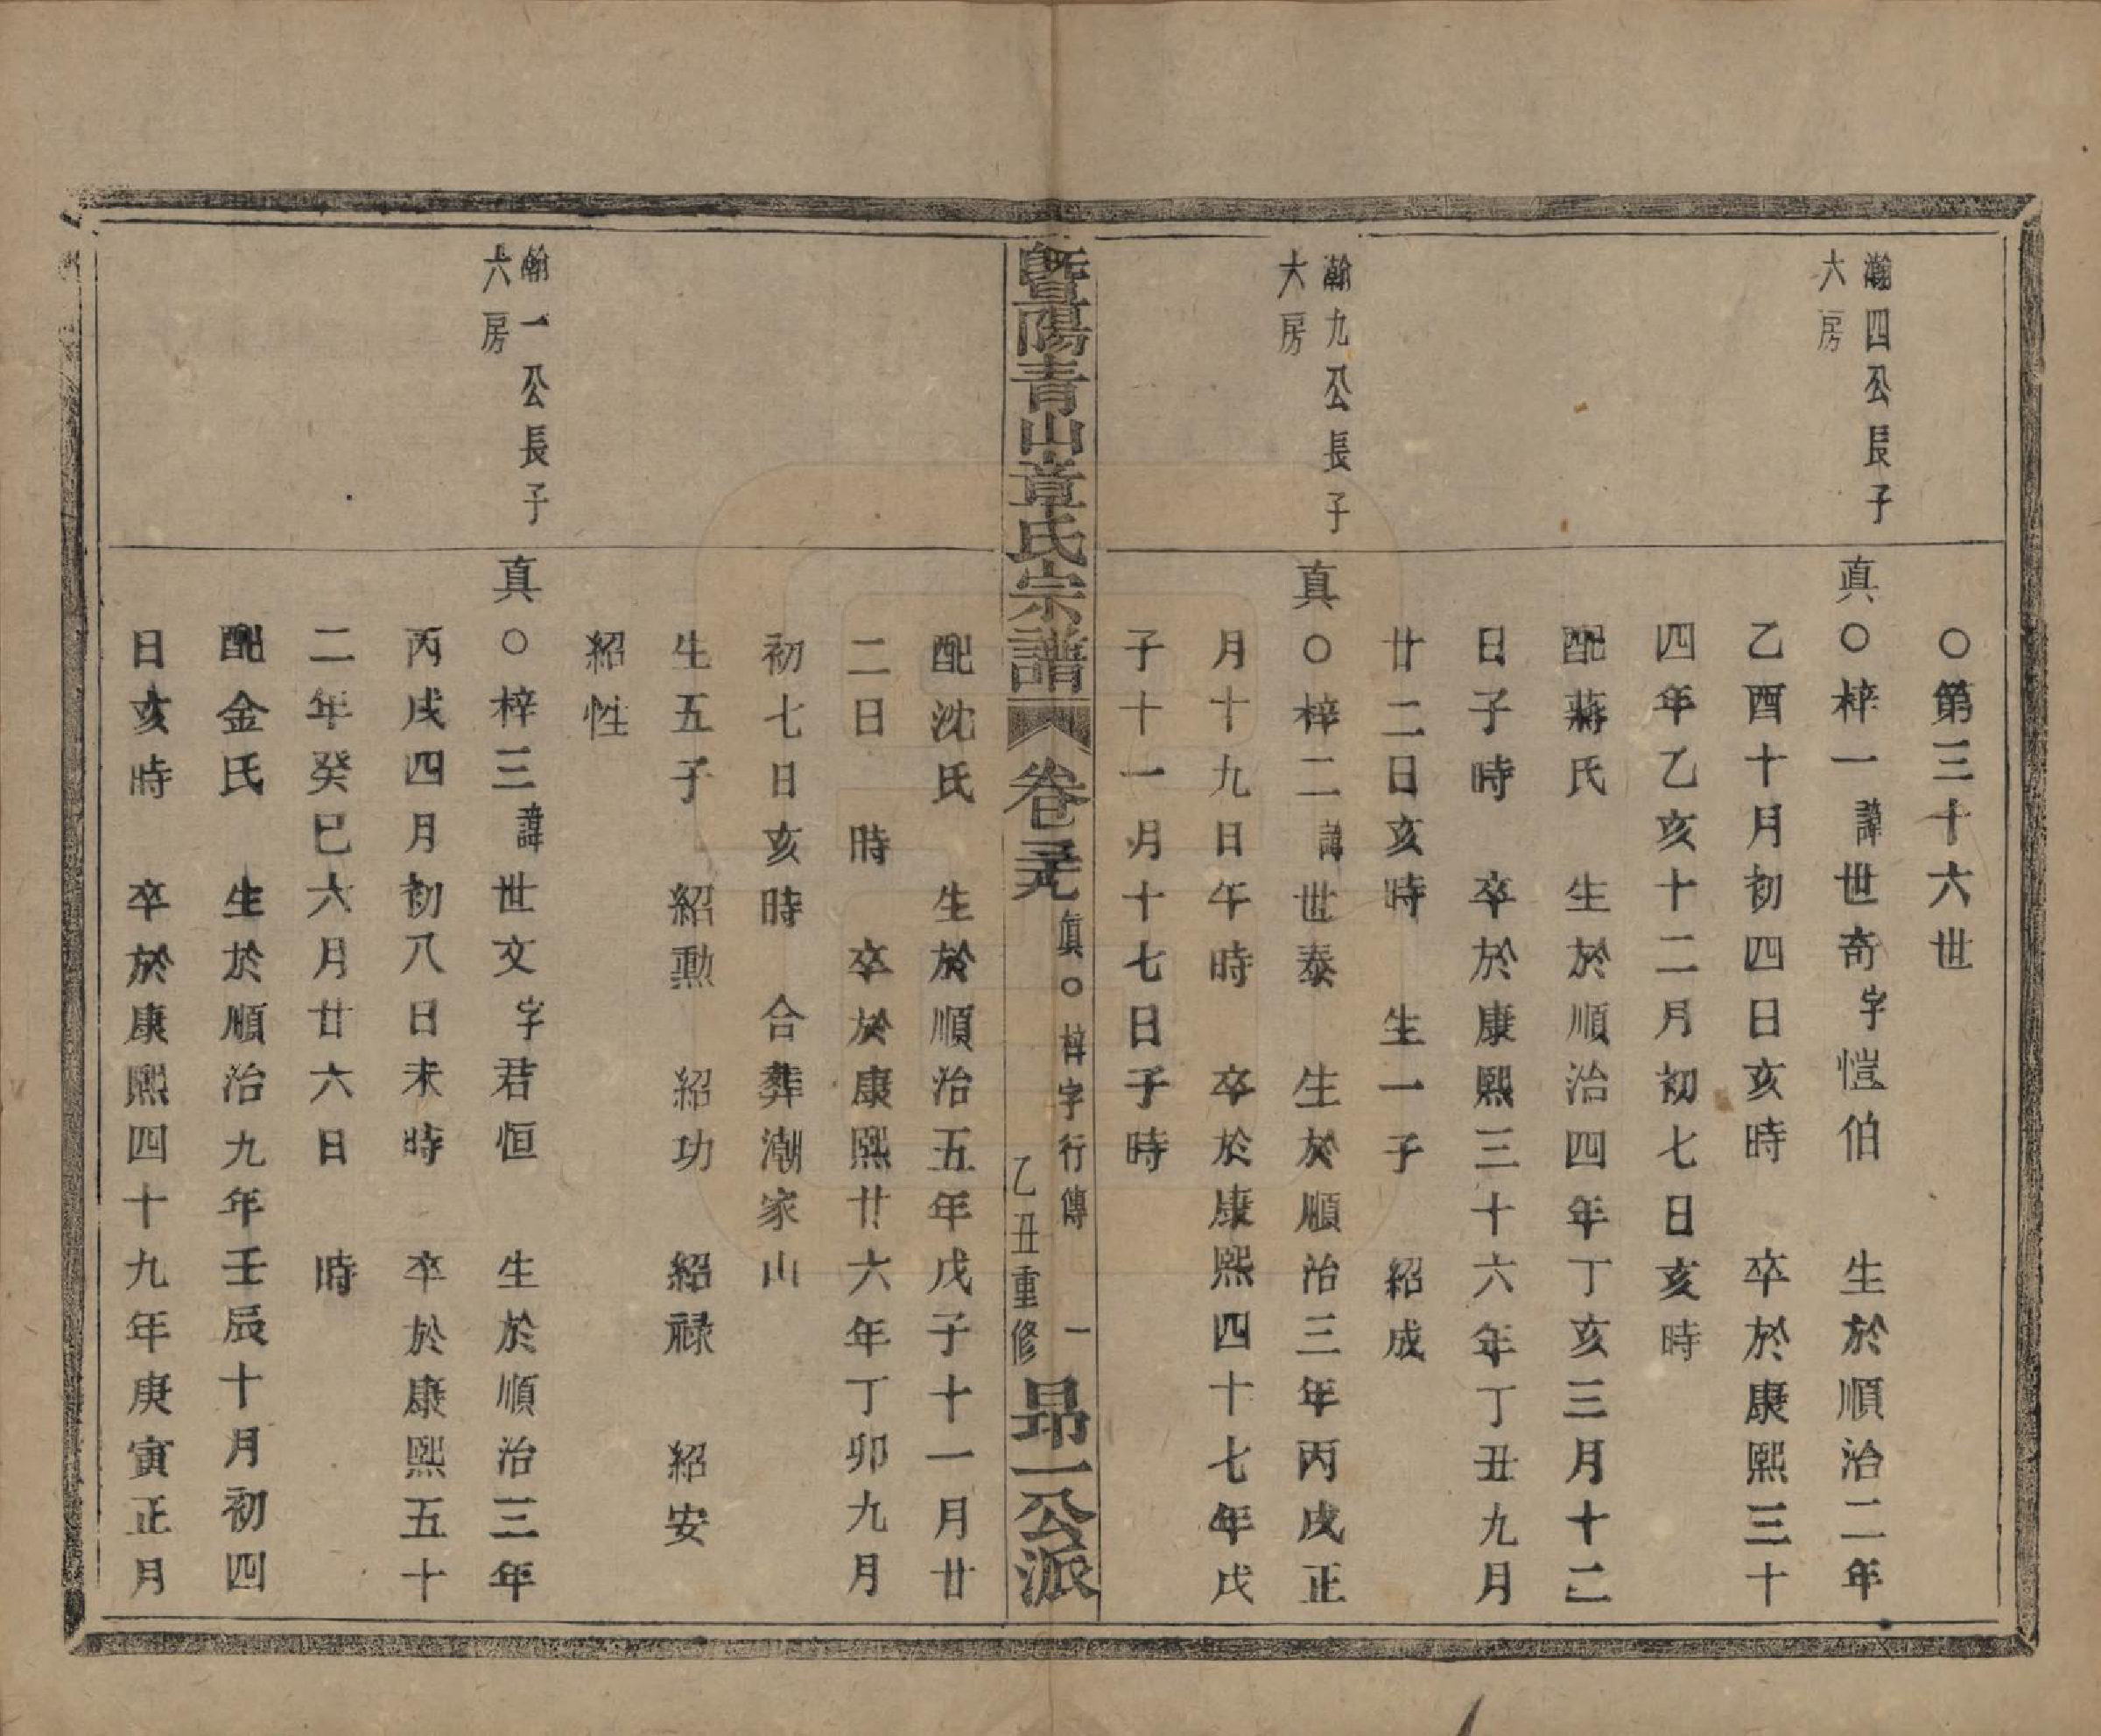 ○第三十六世
瀚四公長子
六房
真○梓一諱世奇字愷伯　生於順治二年
乙酉十月初四日亥時　卒於康熙三十
四年乙亥十二月初七日亥時
配蔣氏　生於順治四年丁亥三月十二
日子時　卒於康熙三十六年丁丑九月
廿二日亥時　生一子　紹成
瀚九公長子
大房
真○梓二諱世泰　生於順治三年丙戌正
月十九日午時　卒於康熙四十七年戊
子十一月十七日子時
暨陽青山章氏宗譜
卷元
真○梓字行傳　一
乙丑重修
昻一公派
配沈氏　生於順治五年戊子十一月廿
二日　時　卒於康熙廿六年丁卯九月
初七日亥時　合葬潮家山
生五子　紹勲　紹功　紹禄　紹安
紹性
瀚一公長子
六房
真○梓三諱世文字君恒　生於順治三年
丙戌四月初八日未時　卒於康熙五十
二年癸巳六月廿六日　時
配金氏　生於順治九年壬辰十月初四
日亥時　卒於康熙四十九年庚寅正月